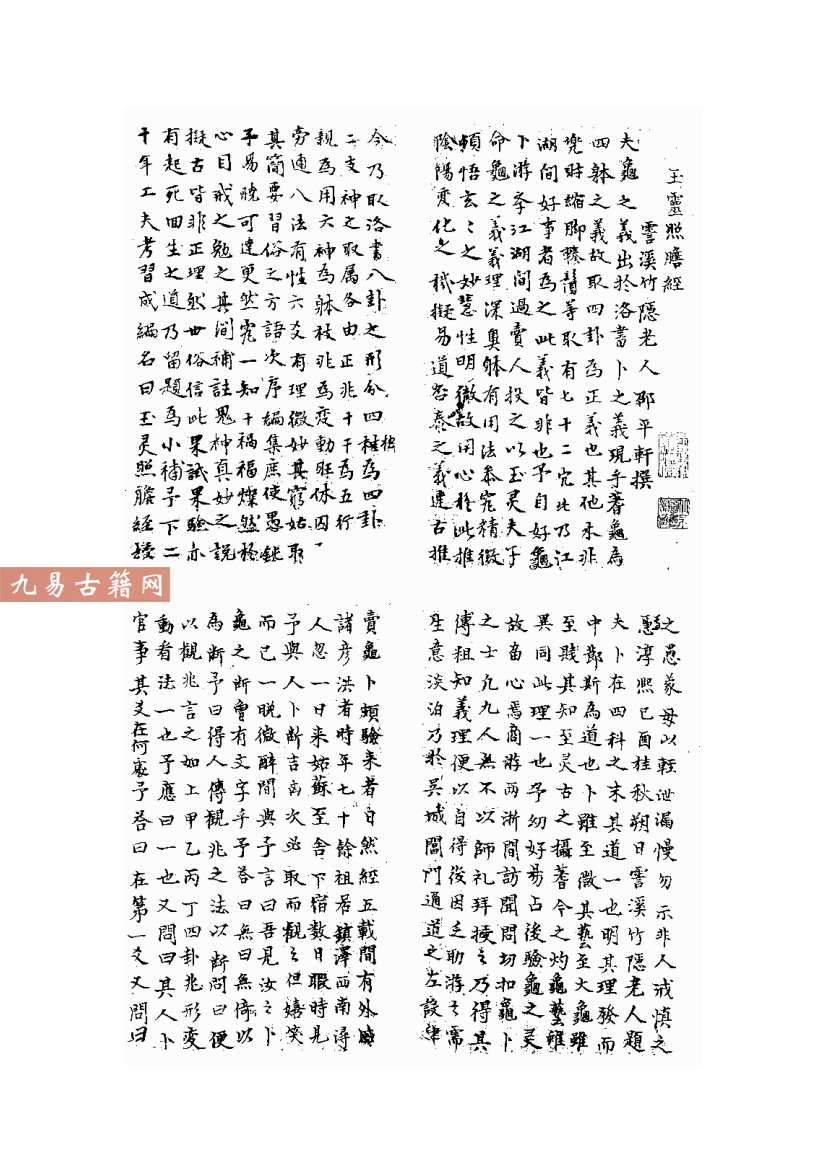 玉靈照膽經
霅溪竹隱老人邵平軒撰
夫龜之義出於洛書卜之義現乎蓍龜為
四躰之義故取四卦為正義也其他木非
兜時縮脚賺鬙等取有七十二完此乃江
湖间好事者為之此義皆非也予自好龜
卜游李江湖间過賣人投之以玉灵夫子
命龜之義義理深奥躰有用法叅究精微
頓悟玄之之妙慧性明徹故用心於此推
陰陽变化之秘擬易道否泰之義遵古推
今乃取洛書八卦之形分四柱為四卦
二支神之取属各由正兆十干為五行
親為用六神為躰枝兆為变動旺休囚
旁通八法有性六爻有理微妙其窮姑取
其簡要習俗之方語次序編集庶使愚鈍
予易曉可達更然究一知十禍福燦然於
心目戒之勉之其间補註鬼神真妙之説
擬古皆非正理然世俗信此果試果驗亦
有起死回生之道乃留題為小補予下二
十年工夫考習成編名曰玉灵照膽經授
之愚蒙毋以輕泄漏慢勿示非人戒慎之
淳熙己酉桂秋朔日霅溪竹隱老人題
夫卜在四科之末其道一也明其理發而
中鄭斯為道也卜雖至微其藝至大龜雖
至賤其知至灵古之攝蓍今之灼龜藝雖
異同此理一也予幼好易占後驗龜之灵
故畄心焉商游两浙間訪聞問切扣龜卜
之士凢九人無不以師礼拜授之乃得其
傳粗知義理便以自得後因乏助游之需
在意淡泊乃於吴城閶門通道之左設肆
賣龜卜頗驗来者日然經五載間有外郡
諸彦洪者時年七十餘祖居鎮澤西南潯
人忽一日来姑蘇至舍下宿数日暇時見
予與人卜断言㐫次必取而觀之但嬉笑
而已一晚微醉間與予言曰吾見汝之卜
龜之断曾有文字乎予荅曰無曰無倚以
為断予曰得人傳觀兆之法以断問曰便
以觀兆言之如上甲乙丙丁四卦兆形变
動看法一也予應曰一也又問曰其人卜
官事其爻在何處予荅曰在第一爻又問曰
九易古籍网